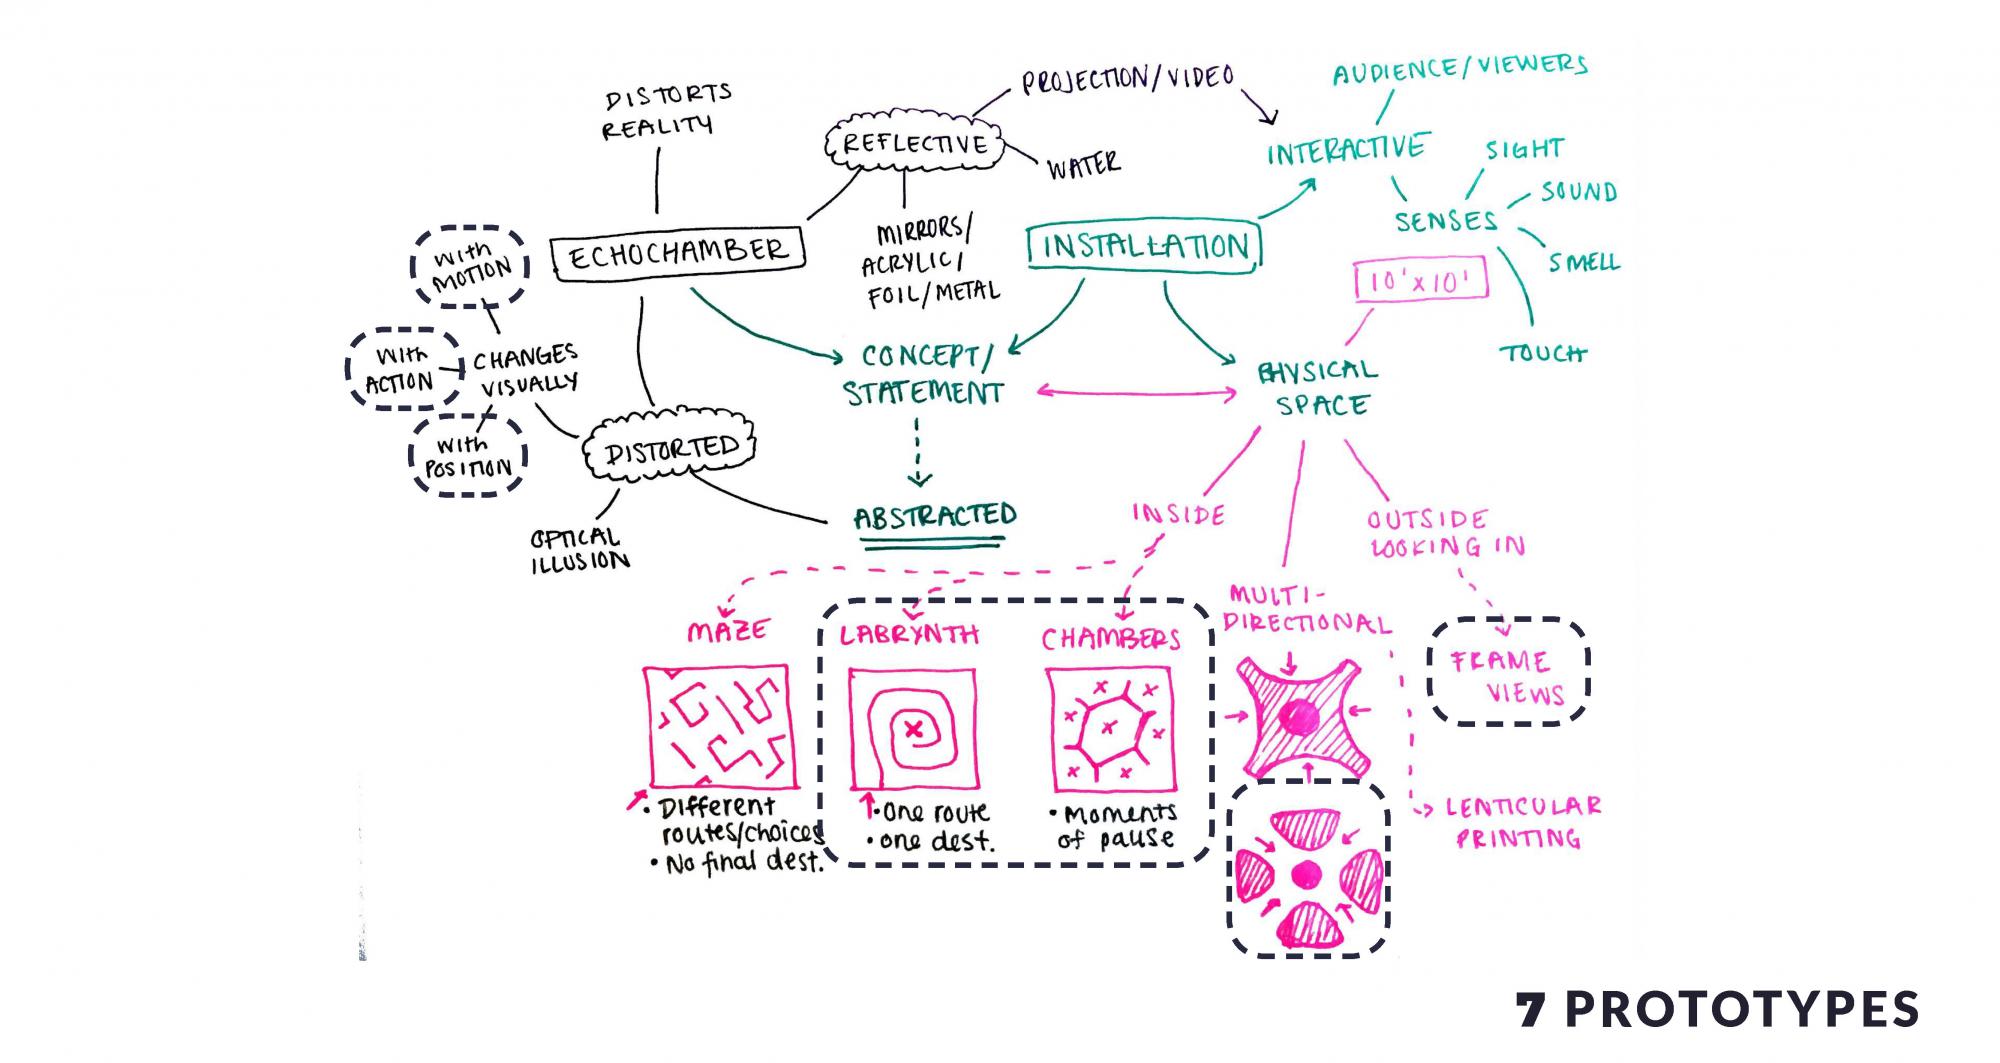 DISTORTS
REALITY
REFLECTIVE
PROJECTION/VIDEO
WATER
MIRRORS/
ACRYLIC/
FOIL/METAL
ECHOCHAMBER
With
MOTION
With
ACTION
With
POSITION
CHANGES
VISUALLY
DISTORTED
OPTICAL
ILLUSION
INSTALLATION
CONCEPT/
STATEMENT
ABSTRACTED
AUDIENCE/VIEWERS
INTERACTIVE
SIGHT
SOUND
SENSES
SMELL
TOUCH
10'x10'
PHYSICAL
SPACE
INSIDE
OUTSIDE
LOOKING IN
MULTI-
DIRECTIONAL
FRAME
VIEWS
LENTICULAR
PRINTING
MAZE
• Different
routes/choices
• No final dest.
LABRYNTH
• One route
• one dest.
CHAMBERS
• Moments
of pause
7 PROTOTYPES